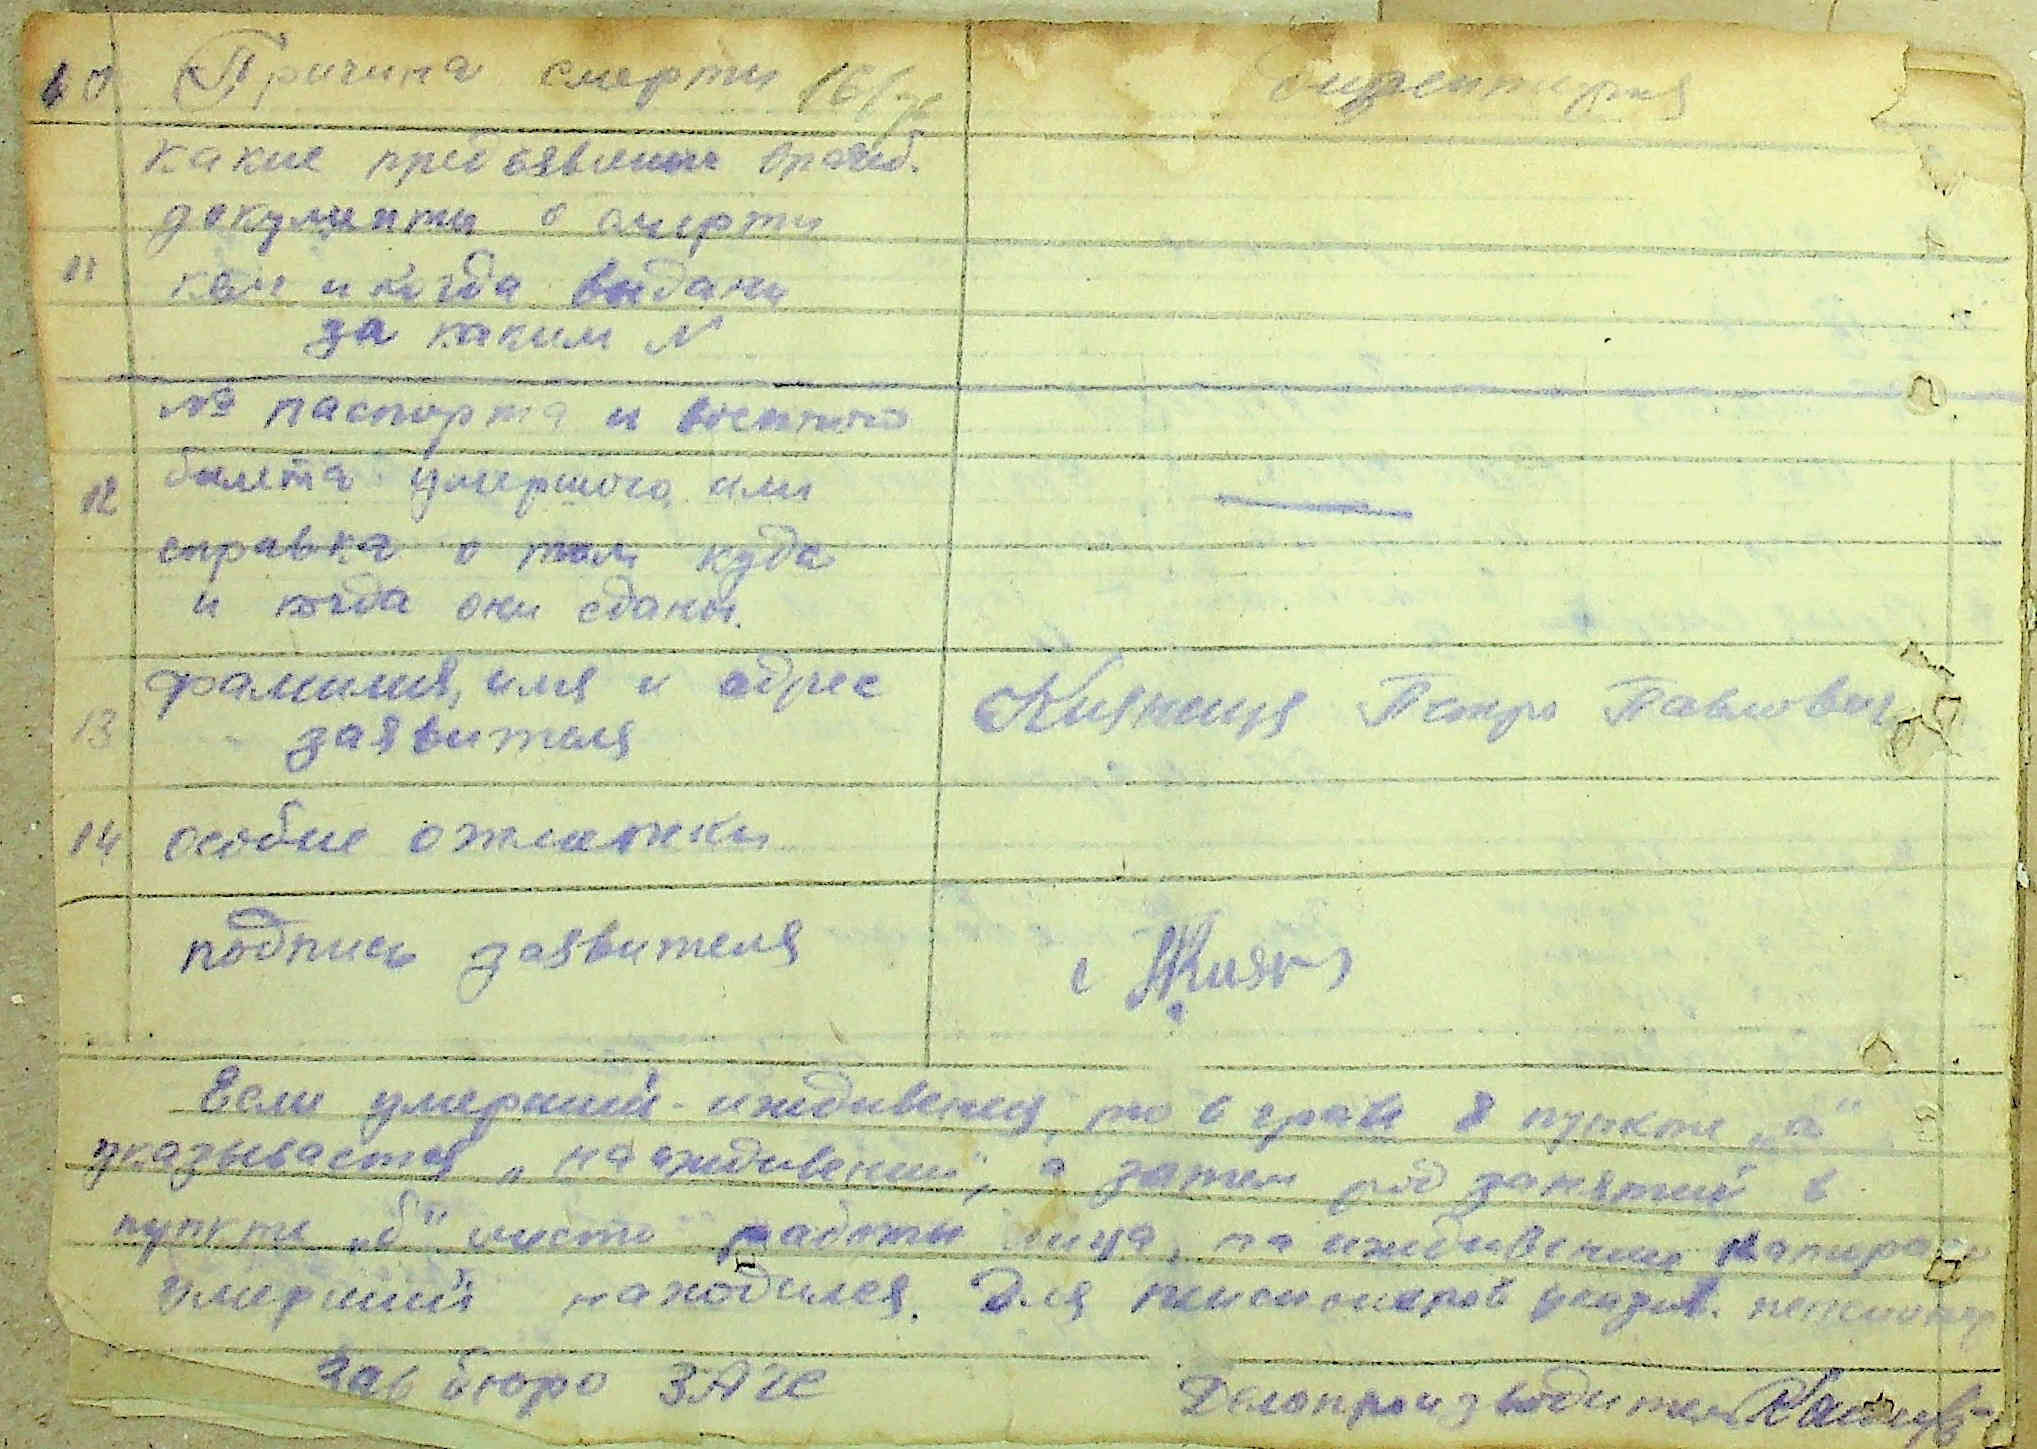 10 Причина смерти дизентерия
какие предъявлены врачеб.
документы о смерти
11 кем и когда выданы
за каким N
№ паспорта и военного
12 билета умершого или
справка о том куда
и когда они сданы.
фамилия, имя и адрес Кияница Петро Павлович
13 заявителя
14 особые отметки
подпись заявителя
Если умерший - иждивенец, то в графе 8 пункте „а"
указывается „на иждивении", а затем род занятий в
пункте „б" место работы лица, на иждивение которого
умерший находился. Для пенсионеров указыв. пенсионер
Зав бюро ЗАГС Делопроизводитель